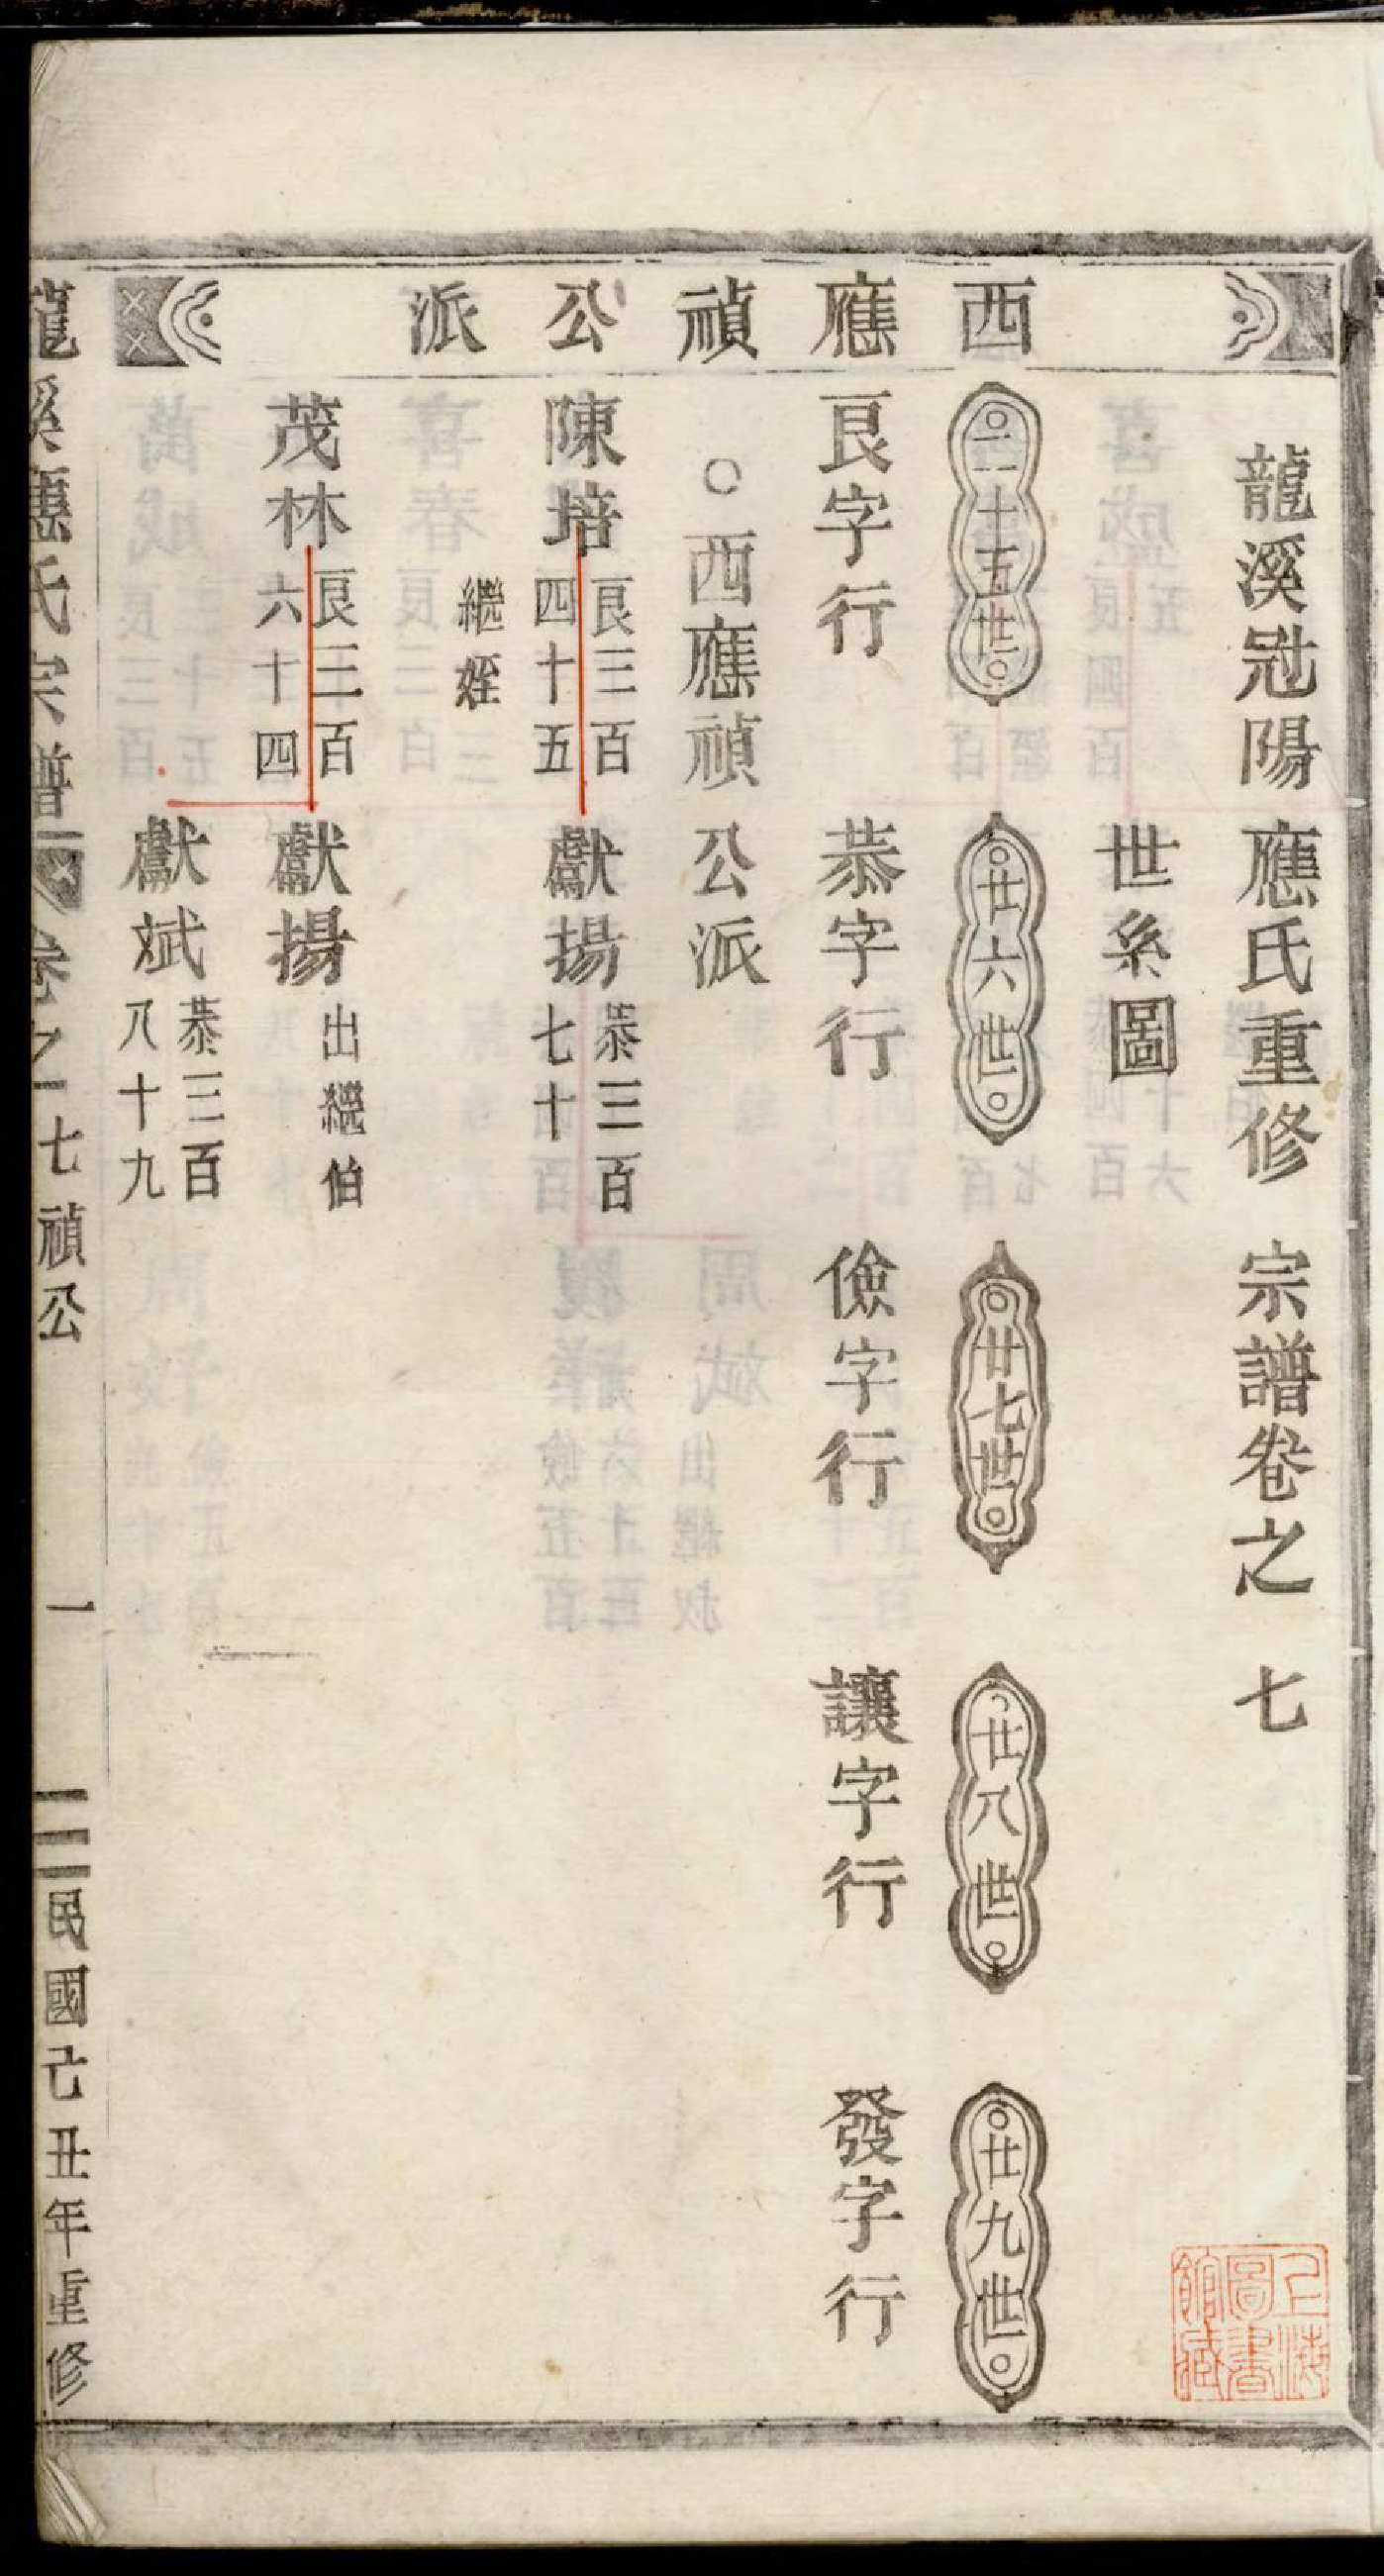 龍溪冦陽應氏重修宗譜卷之七
世系圖
西應禎公派
二十五世
廿六世
廿七世
廿八世
廿九世
艮字行
恭字行
儉字行
讓字行
發字行
○西應禎公派
陳培
艮三百
四十五
繼姪
獻揚
恭三百
七十
茂林
艮三百
六十四
獻揚
出繼伯
獻斌
恭三百
八十九
龍溪應氏宗譜
卷之七禎公
一
民國己丑年重修
上海圖書館藏